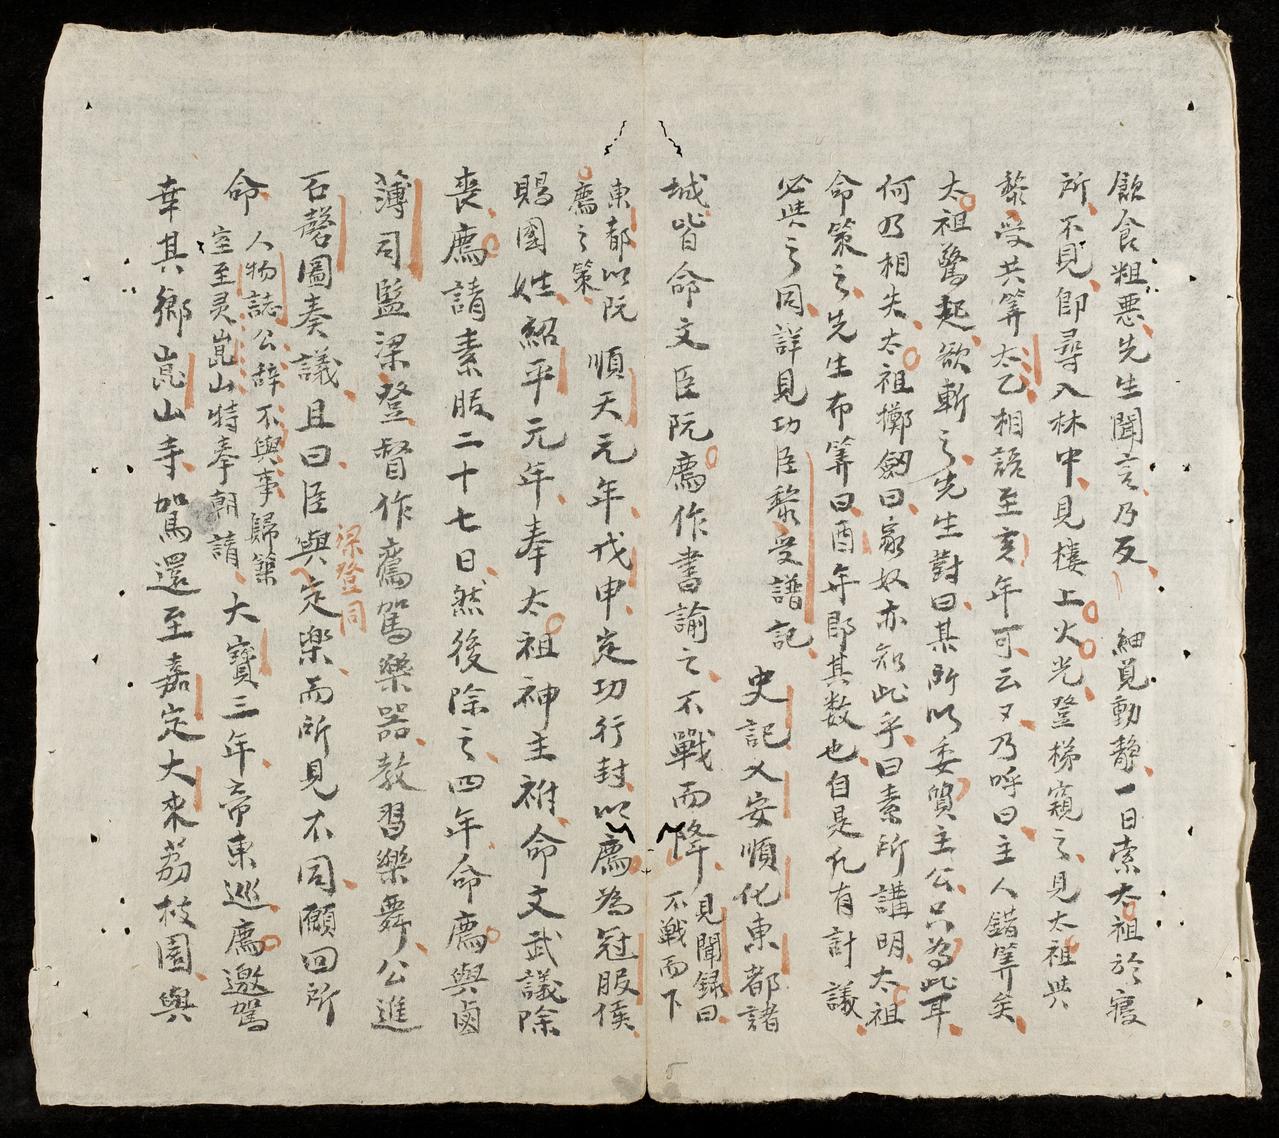 飲食粗悪先生聞言乃反　細覓動静一日索太祖於寢
所不見即尋入林中見樓上火光登梯窺之見太祖共
黎受共筭太乙相語至亥年可云云乃呼曰主人錯筭矣
太祖驚起欲斬之先生對曰某所以委質主公只為此耳
何乃相失太祖擲劔曰家奴亦知此乎曰素所講明太祖
命策之先生布筭曰酉年即其数也自是凡有計議
必與之同詳見功臣黎受譜記
史記乂安順化東都諸
城皆命文臣阮廌作書諭之不戰而降
見聞録曰
不戦而下
東都以阮
廌之策
順天元年戊申定功行封以廌為冠服侯
賜國姓紹平元年奉太祖神主祔命文武議除
喪廌請素服二十七日然後除之四年命廌與鹵
簿司監梁登督作鸞駕樂器教習樂舞公進
石磬圖奏議且曰臣與定楽而所見不同願回所
梁登同
命
人物誌公辞不與事歸築
室至灵崑山特奉朝請
大寶三年帝東巡廌邀駕
幸其鄉崑山寺駕還至嘉定大来荔枝園與